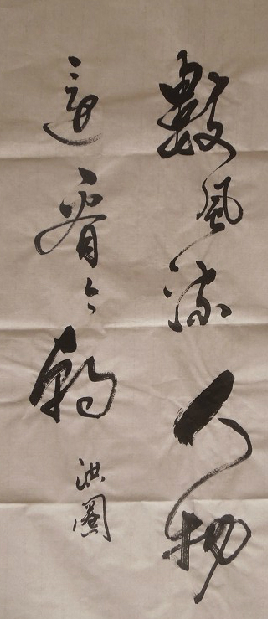 數風流人物
還看今朝
洪閣